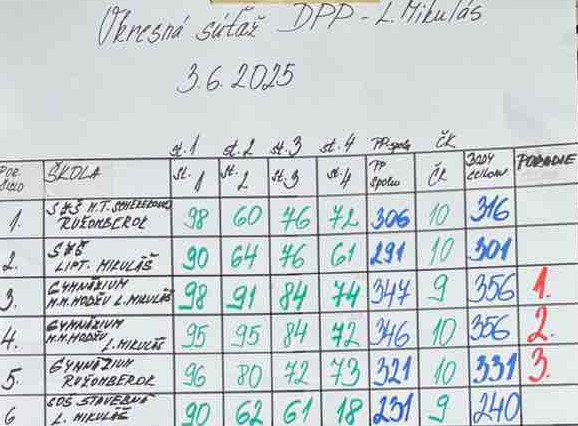 Okresná súťaž DPP - L. Mikuláš
3.6.2025
st. 1 st. 2 st. 3 st. 4 PP spolu ČK
POR. ČÍSLO ŠKOLA st. 1 st. 2 st. 3 st. 4 PP spolu ČK BODY celkom PORADIE
1. SZŠ M.T. RUŽOMBEROK 98 60 76 72 306 10 316
2. SZŠ LIPT. MIKULÁŠ 90 64 76 61 291 10 301
3. GYMNÁZIUM M.M. HODŽU L. MIKULÁŠ 98 91 84 74 347 9 356 1.
4. GYMNÁZIUM M.M. HODŽU L. MIKULÁŠ 95 95 84 72 346 10 356 2.
5. GYMNÁZIUM RUŽOMBEROK 96 80 72 73 321 10 331 3.
6 SOŠ STAVEBNÁ L. MIKULÁŠ 90 62 61 18 231 9 240